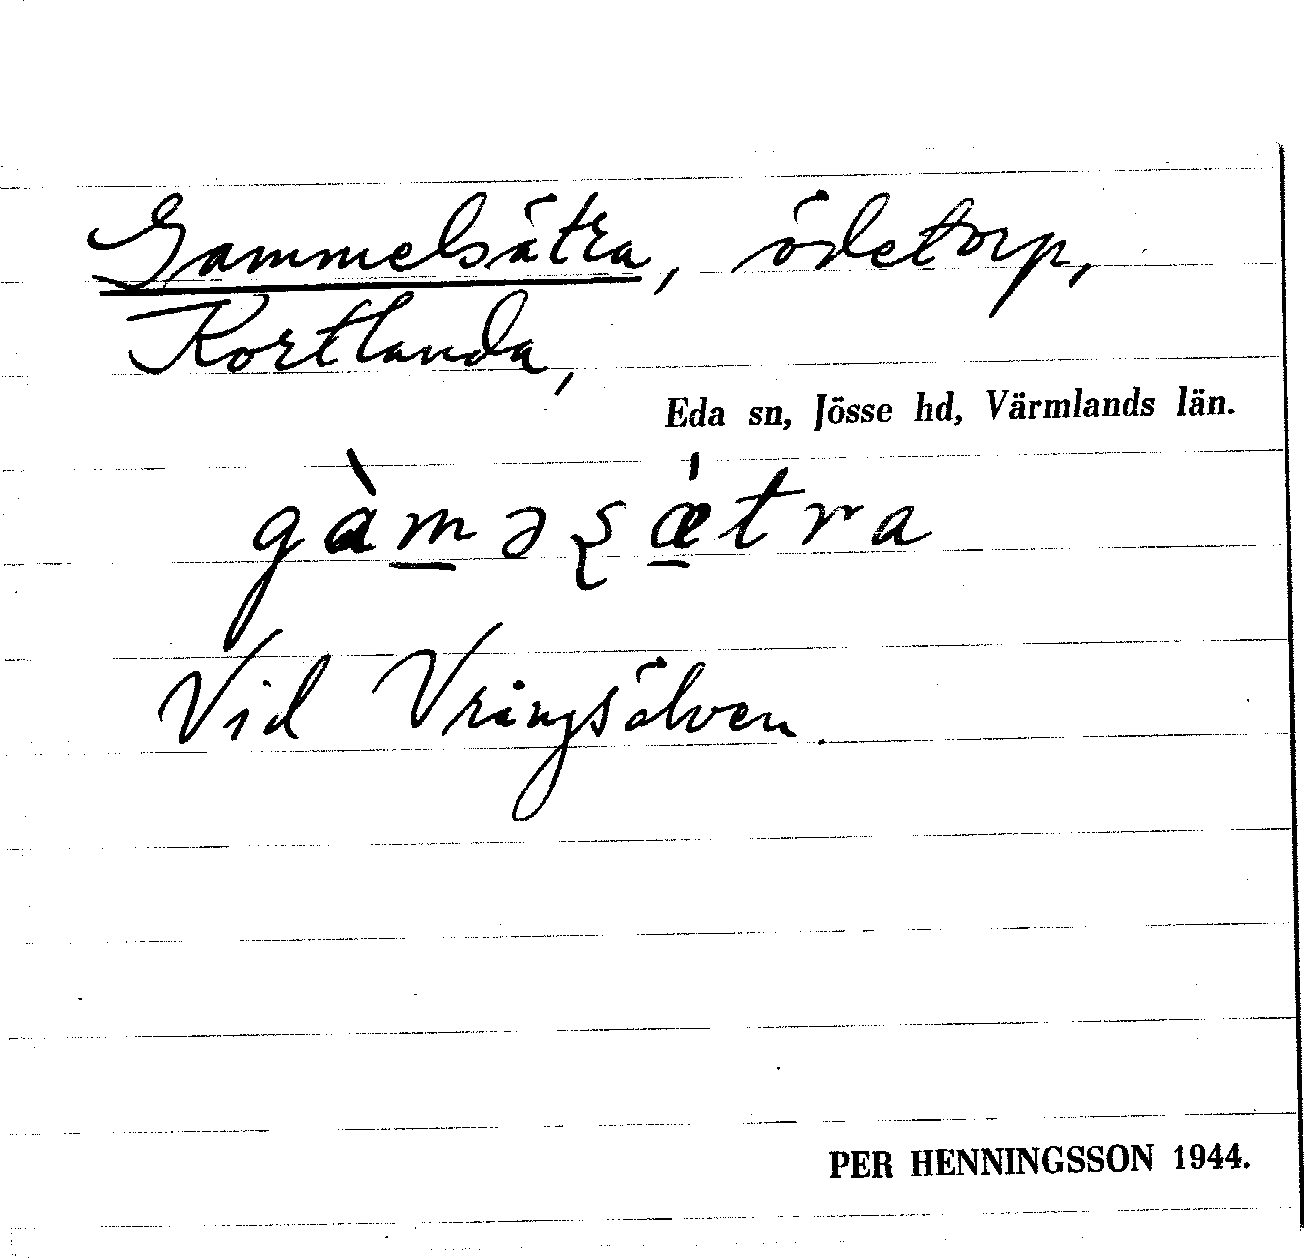 Gammelsätra, ödetorp,
Kortlanda,
Eda sn, Jösse hd, Värmlands län.
gàm̲əʂǽ̲tra
Vid Vrångsälven.
PER HENNINGSSON 1944.